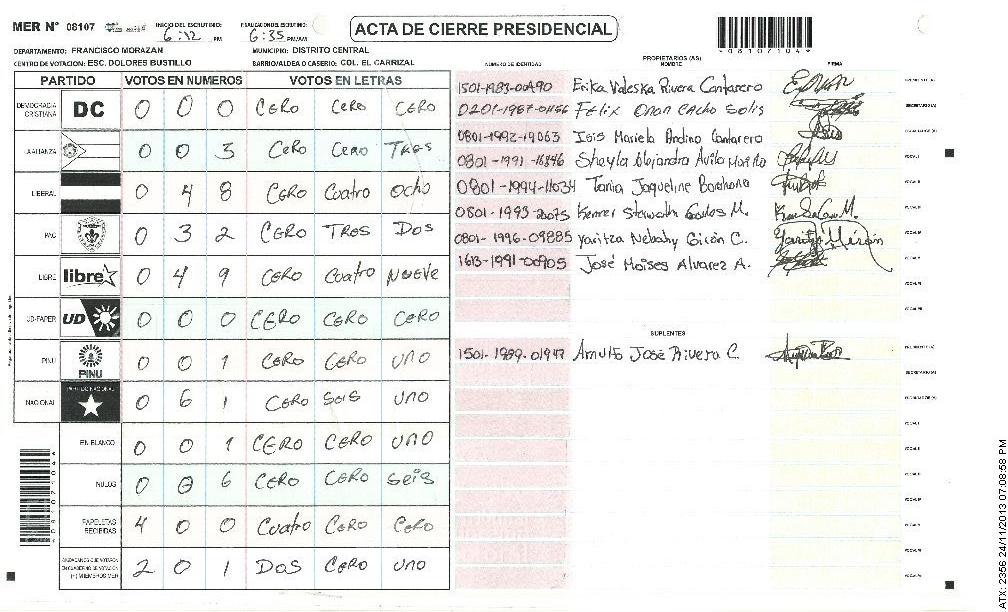 MER N° 08107 INICIO DEL ESCRUTINIO: 6:12 PM FINALIZACION DEL ESCRUTINIO: 6:35 PM/AM ACTA DE CIERRE PRESIDENCIAL
*08107104*
DEPARTAMENTO: FRANCISCO MORAZAN MUNICIPIO: DISTRITO CENTRAL
CENTRO DE VOTACION: ESC. DOLORES BUSTILLO BARRIO/ALDEA O CASERIO: COL. EL CARRIZAL
PARTIDO VOTOS EN NUMEROS VOTOS EN LETRAS
DEMOCRACIA CRISTIANA DC 0 0 0 CERO CERO CERO
ALIANZA 0 0 3 CERO CERO TRES
LIBERAL 0 4 8 CERO Cuatro ocho
PAC 0 3 2 CERO TRES DOS
LIBRE libre 0 4 9 CERO Cuatro NUEVE
UD-FAPER UD 0 0 0 CERO CERO CERO
PINU PINU 0 0 1 CERO CERO UNO
NACIONAL PARTIDO NACIONAL 0 6 1 CERO SEIS UNO
EN BLANCO 0 0 1 CERO CERO UNO
NULOS 0 0 6 CERO CERO SEIS
PAPELETAS RECIBIDAS 4 0 0 Cuatro CERO CERO
CIUDADANOS QUE VOTARON EN CUADERNO DE VOTACION (+) MIEMBROS MER 2 0 1 DOS CERO UNO
NÚMERO DE IDENTIDAD PROPIETARIOS (AS) NOMBRE FIRMA
1501-1983-00490 Erika Valeska Rivera Cantarero PRESIDENTE (A)
0201-1987-01156 Felix Onan Cacho Solis SECRETARIO (A)
0801-1992-19063 Isis Mariela Andino Cantarero
0801-1991-16846 Sheyla Alejandra Avila VOCAL I
0801-1994-11034 Tania Jaqueline Barahona
0801-1993-20075
0801-1996-09885 Yaritza Nebahy Giron C.
1613-1991-00905 José Moises Alvarez A.
SUPLENTES
1501-1989-01947 Arnulfo José Rivera C. PRESIDENTE (A)
SECRETARIO (A)
ATX: 2356 24/11/2013 07:08:58 PM